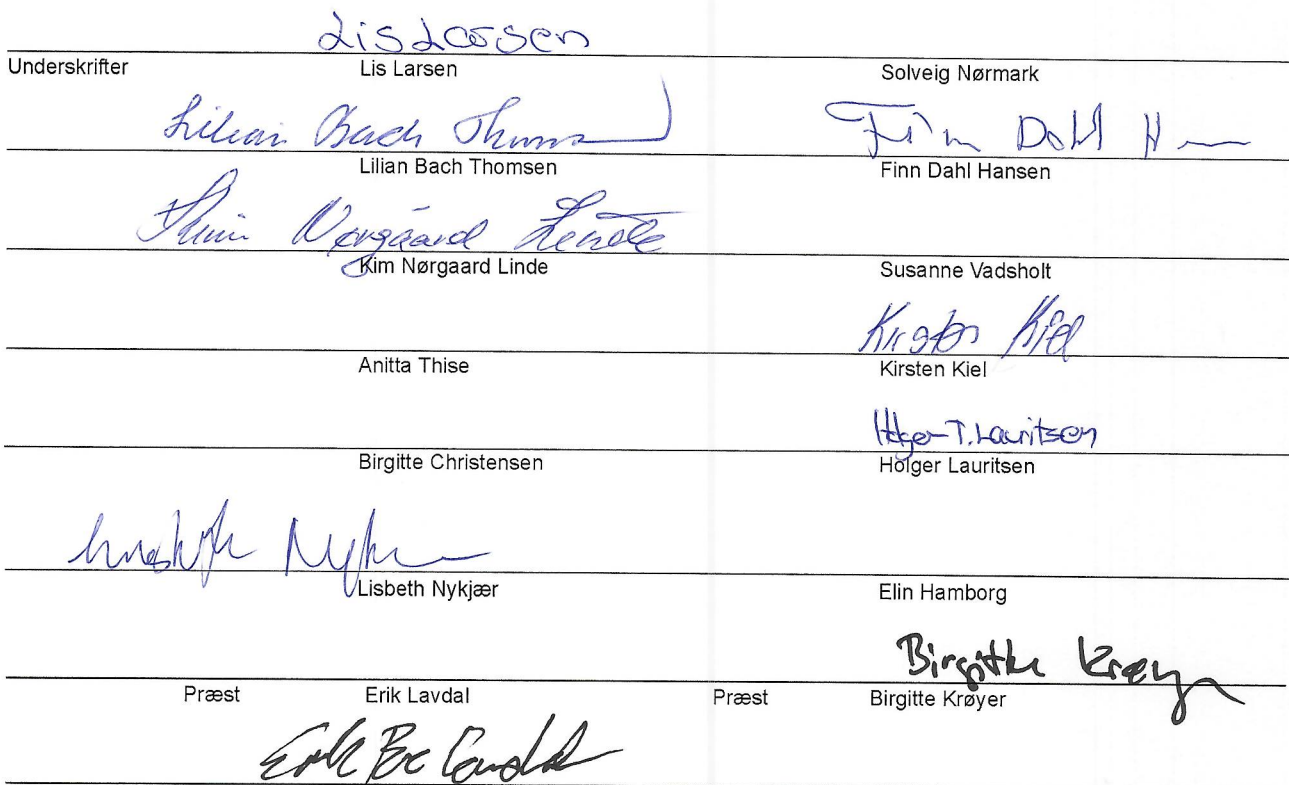 Lis Larsen
Underskrifter Lis Larsen Solveig Nørmark
Lilian Bach Finn Dahl
Lilian Bach Thomsen Finn Dahl Hansen
Kim Nørgaard Linde
Kim Nørgaard Linde Susanne Vadsholt
Kirsten Kiel
Anitta Thise Kirsten Kiel
Holger T. Lauritsen
Birgitte Christensen Holger Lauritsen
Lisbeth Nykjær Elin Hamborg
Birgitte Krøyer
Præst Erik Lavdal Præst Birgitte Krøyer
Erik